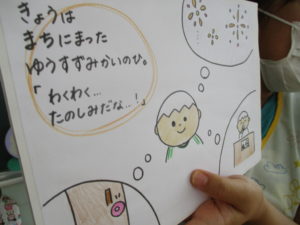 きょうは
まちにまった
ゆうすずみかいのひ。
「わくわく…
たのしみだな…!」